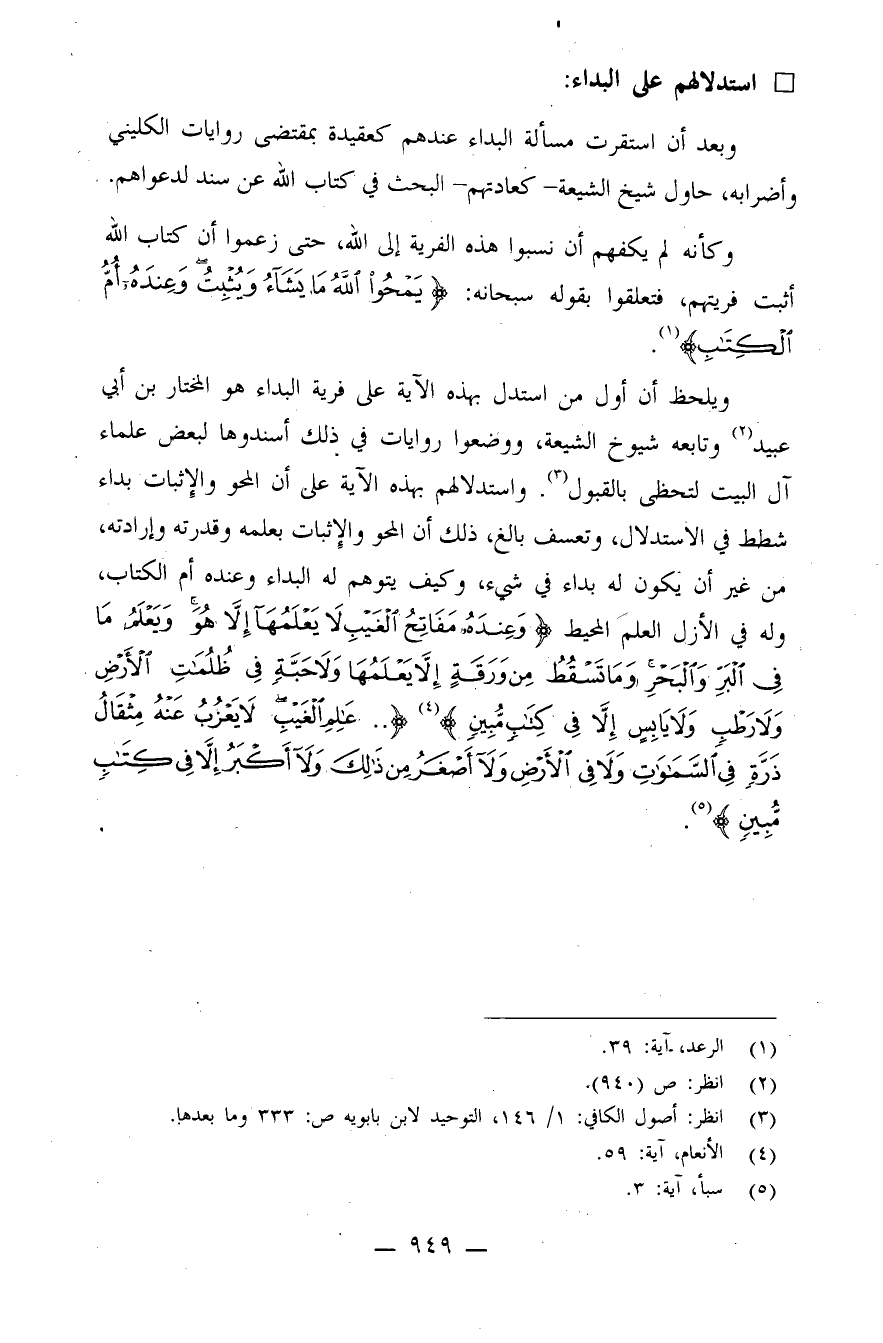 □ استدلالهم على البداء:
وبعد أن استقرت مسألة البداء عندهم كعقيدة بمقتضى روايات الكليني
وأضرابه، حاول شيخ الشيعة– كعادتهم– البحث في كتاب الله عن سند لدعواهم.
وكأنه لم يكفهم أن نسبوا هذه الفرية إلى الله، حتى زعموا أن كتاب الله
أثبت فريتهم، فتعلقوا بقوله سبحانه: ﴿ يَمْحُوا۟ ٱللَّهُ مَا يَشَآءُ وَيُثْبِتُ ۖ وَعِندَهُۥٓ أُمُّ
ٱلْكِتَٰبِ ﴾(١).
ويلحظ أن أول من استدل بهذه الآية على فرية البداء هو المختار بن أبي
عبيد(٢) وتابعه شيوخ الشيعة، ووضعوا روايات في ذلك أسندوها لبعض علماء
آل البيت لتحظى بالقبول(٣). واستدلالهم بهذه الآية على أن المحو والإثبات بداء
شطط في الاستدلال، وتعسف بالغ، ذلك أن المحو والإثبات بعلمه وقدرته وإرادته،
من غير أن يكون له بداء في شيء، وكيف يتوهم له البداء وعنده أم الكتاب،
وله في الأزل العلم المحيط ﴿ وَعِندَهُۥ مَفَاتِحُ ٱلْغَيْبِ لَا يَعْلَمُهَآ إِلَّا هُوَ ۚ وَيَعْلَمُ مَا
فِى ٱلْبَرِّ وَٱلْبَحْرِ ۚ وَمَا تَسْقُطُ مِن وَرَقَةٍ إِلَّا يَعْلَمُهَا وَلَا حَبَّةٍ فِى ظُلُمَٰتِ ٱلْأَرْضِ
وَلَا رَطْبٍ وَلَا يَابِسٍ إِلَّا فِى كِتَٰبٍ مُّبِينٍ ﴾(٤) ﴿ .. عَٰلِمِ ٱلْغَيْبِ ۖ لَا يَعْزُبُ عَنْهُ مِثْقَالُ
ذَرَّةٍ فِى ٱلسَّمَٰوَٰتِ وَلَا فِى ٱلْأَرْضِ وَلَآ أَصْغَرُ مِن ذَٰلِكَ وَلَآ أَكْبَرُ إِلَّا فِى كِتَٰبٍ
مُّبِينٍ ﴾(٥).
(١) الرعد، آية: ٣٩.
(٢) انظر: ص (٩٤٠).
(٣) انظر: أصول الكافي: ١/ ١٤٦، التوحيد لابن بابويه ص: ٣٣٣ وما بعدها.
(٤) الأنعام، آية: ٥٩.
(٥) سبأ، آية: ٣.
— ٩٤٩ —